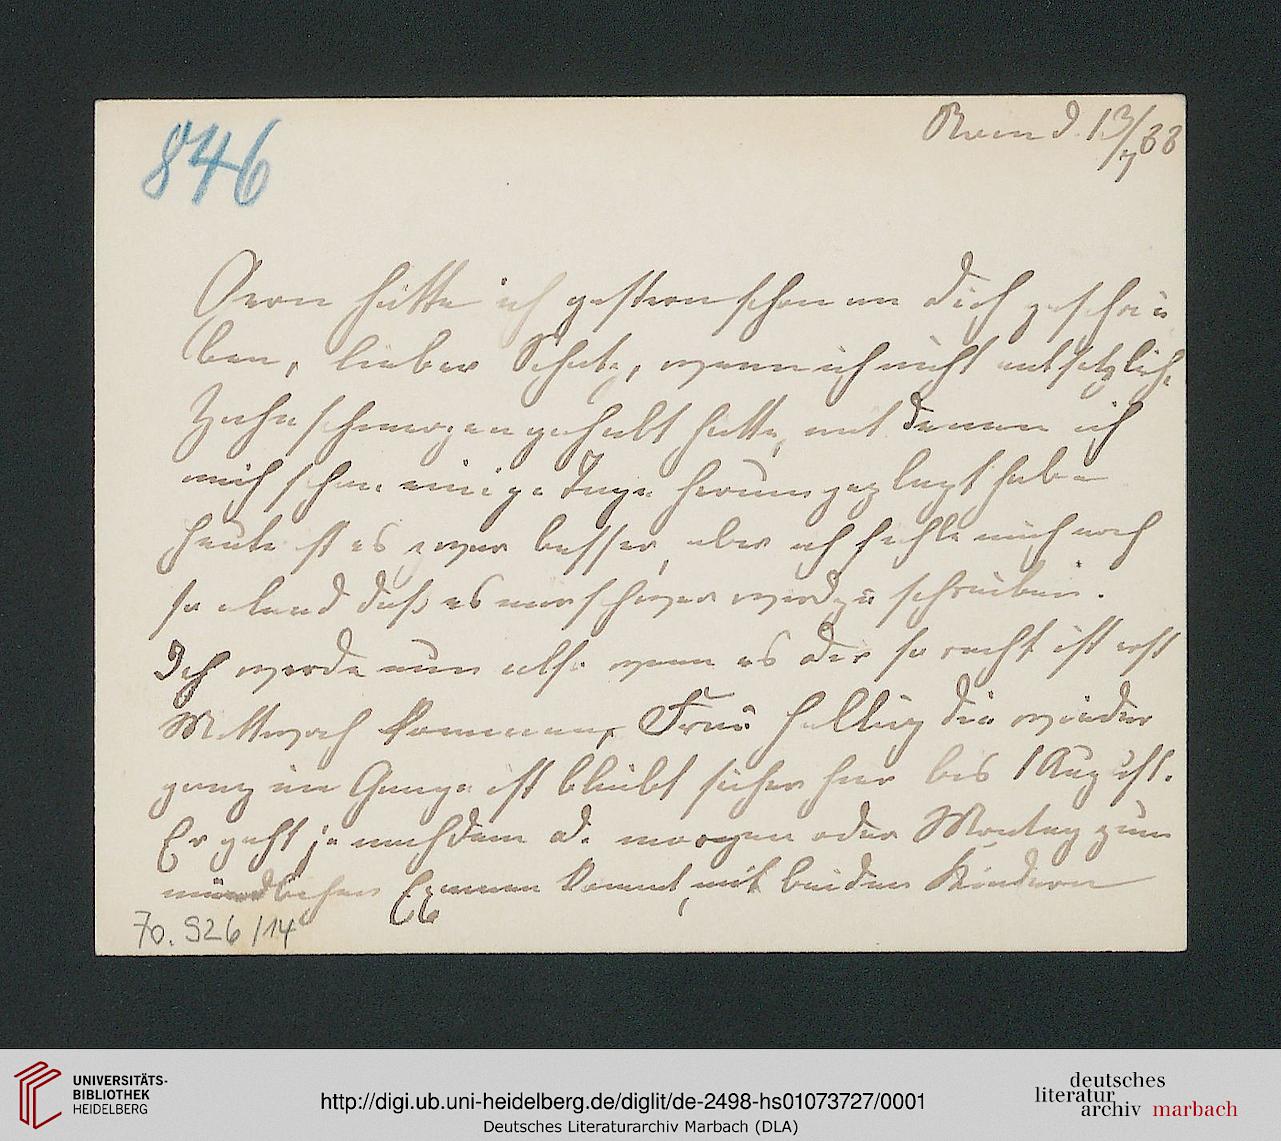 846
d. 13/7 88
Gern hätte ich gestern schon an Dich geschrie
ben, lieber Schatz, wenn ich nicht entsetzliche
Zahnschmerzen gehabt hätte, mit denen ich
mich schon einige Tage herumgeplagt habe
heute ist es zwar besser, aber ich fühle mich noch
so elend daß es mir schwer wird zu schreiben.
Ich werde nun also wenn es dir so recht ist erst
Mittwoch kommen, Frau die wieder
ganz im Gange ist bleibt sicher hier bis 1 August.
Er geht je nachdem ob morgen oder Montag zum
mündlichen Examen kommt, mit beiden Kindern
70.926/14
UNIVERSITÄTS-
BIBLIOTHEK
HEIDELBERG
http://digi.ub.uni-heidelberg.de/diglit/de-2498-hs01073727/0001
Deutsches Literaturarchiv Marbach (DLA)
deutsches
literatur
archiv marbach